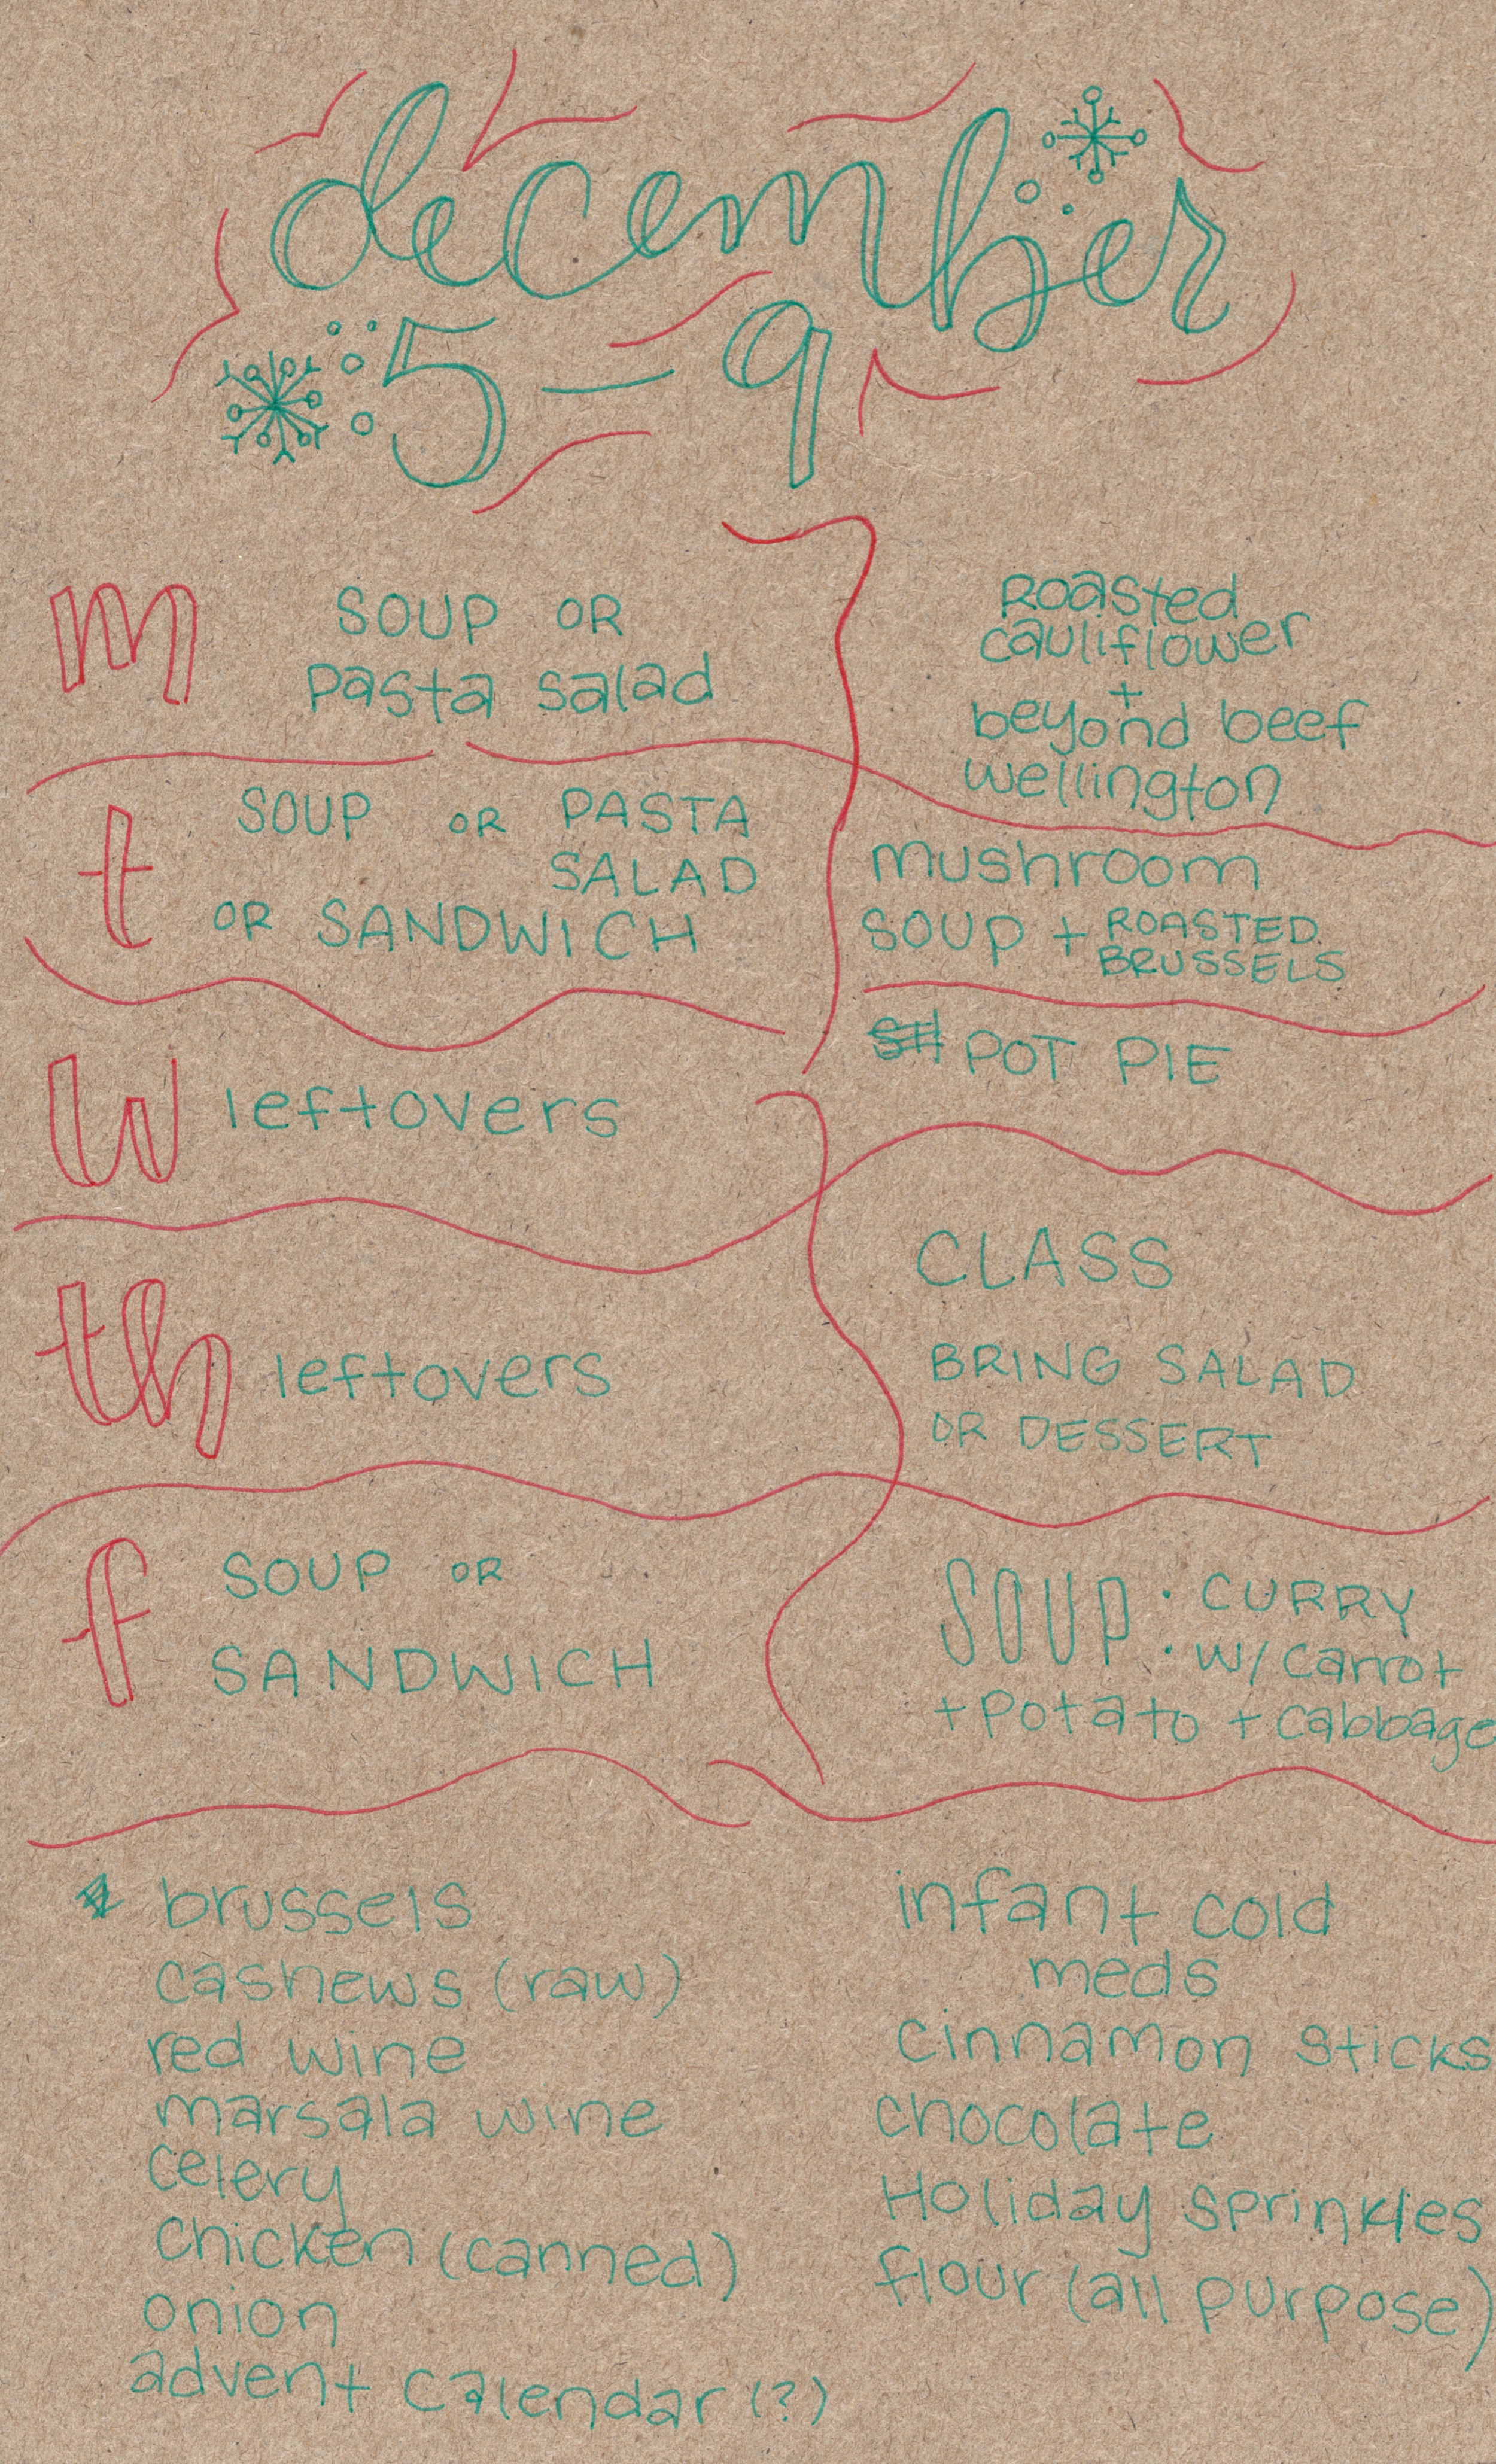 december
5 – 9
m
SOUP OR
Pasta salad
Roasted
cauliflower
+
beyond beef
wellington
t
SOUP OR PASTA
SALAD
OR SANDWICH
mushroom
SOUP + ROASTED
BRUSSELS
W
leftovers
POT PIE
th
leftovers
CLASS
BRING SALAD
OR DESSERT
f
SOUP OR
SANDWICH
SOUP: CURRY
w/ carrot
+ potato + cabbage
brussels
cashews (raw)
red wine
marsala wine
celery
chicken (canned)
onion
advent calendar (?)
infant cold
meds
cinnamon sticks
chocolate
Holiday sprinkles
flour (all purpose)